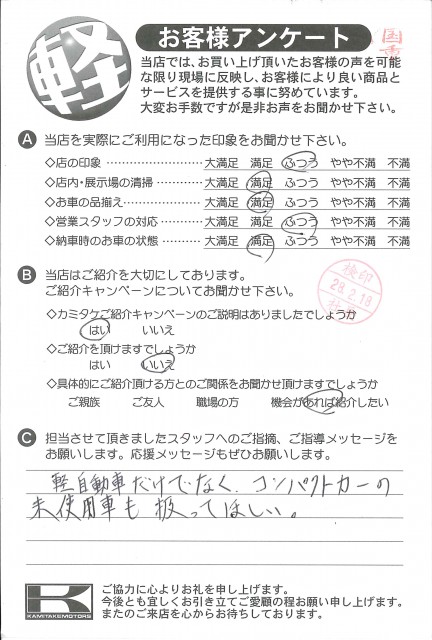 軽
お客様アンケート
当店では、お買い上げ頂いたお客様の声を可能
な限り現場に反映し、お客様により良い商品と
サービスを提供する事に努めています。
大変お手数ですが是非お声をお聞かせ下さい。
A 当店を実際にご利用になった印象をお聞かせ下さい。
◇店の印象 ………………… 大満足 満足 ふつう やや不満 不満
◇店内・展示場の清掃 ………… 大満足 満足 ふつう やや不満 不満
◇お車の品揃え ……………… 大満足 満足 ふつう やや不満 不満
◇営業スタッフの対応 ………… 大満足 満足 ふつう やや不満 不満
◇納車時のお車の状態 ………… 大満足 満足 ふつう やや不満 不満
B 当店はご紹介を大切にしております。
ご紹介キャンペーンについてお聞かせ下さい。
検印
28.2.18
◇カミタケご紹介キャンペーンのご説明はありましたでしょうか
はい いいえ
◇ご紹介を頂けますでしょうか
はい いいえ
◇具体的にご紹介頂ける方とのご関係をお聞かせ頂けますでしょうか
ご親族 ご友人 職場の方 機会があれば紹介したい
C 担当させて頂きましたスタッフへのご指摘、ご指導メッセージを
お願いします。応援メッセージもぜひお願いします。
軽自動車だけでなく、コンパクトカーの
未使用車も扱ってほしい。
K
KAMITAKEMOTORS
ご協力に心よりお礼を申し上げます。
今後とも宜しくお引き立てご愛顧の程お願い申し上げます。
またのご来店を心からお待ちしております。